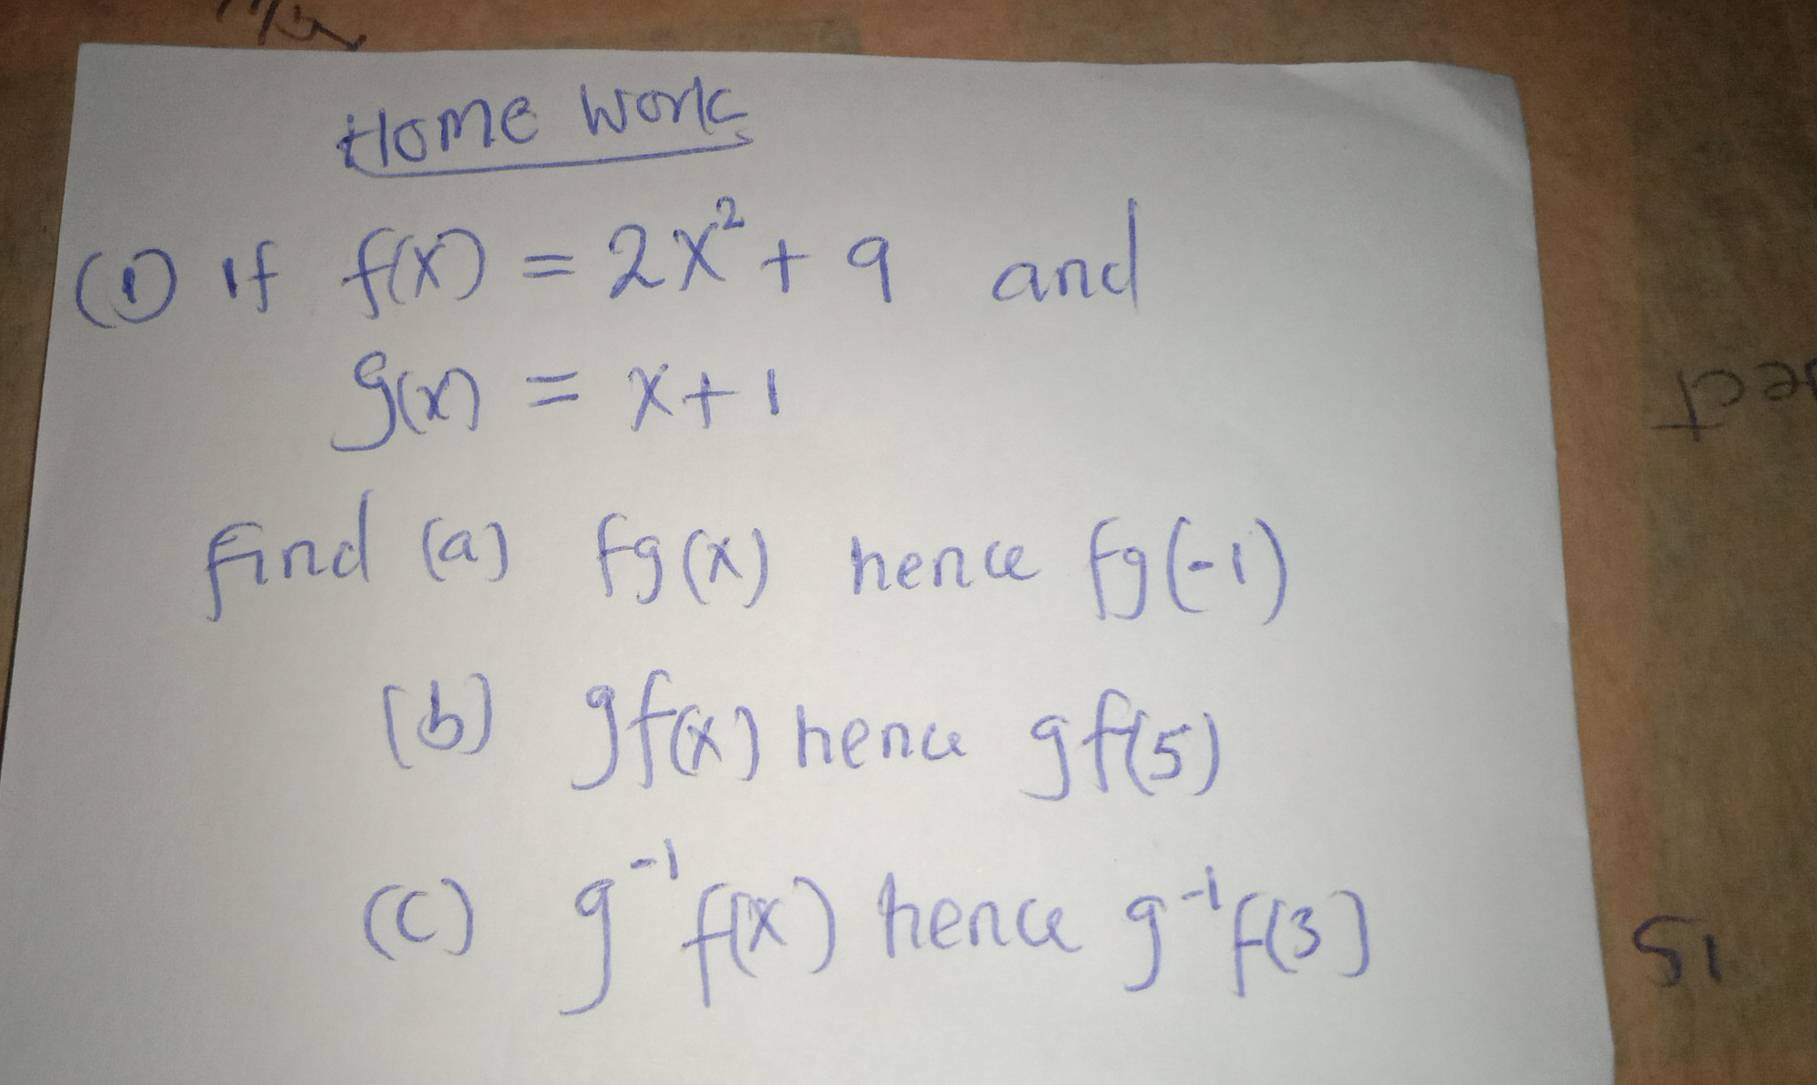 Home Work
(1) If f(x) = 2x² + 9 and
g(x) = x + 1
find (a) fg(x) hence fg(-1)
(b) gf(x) hence gf(5)
(c) g⁻¹f(x) hence g⁻¹f(3)